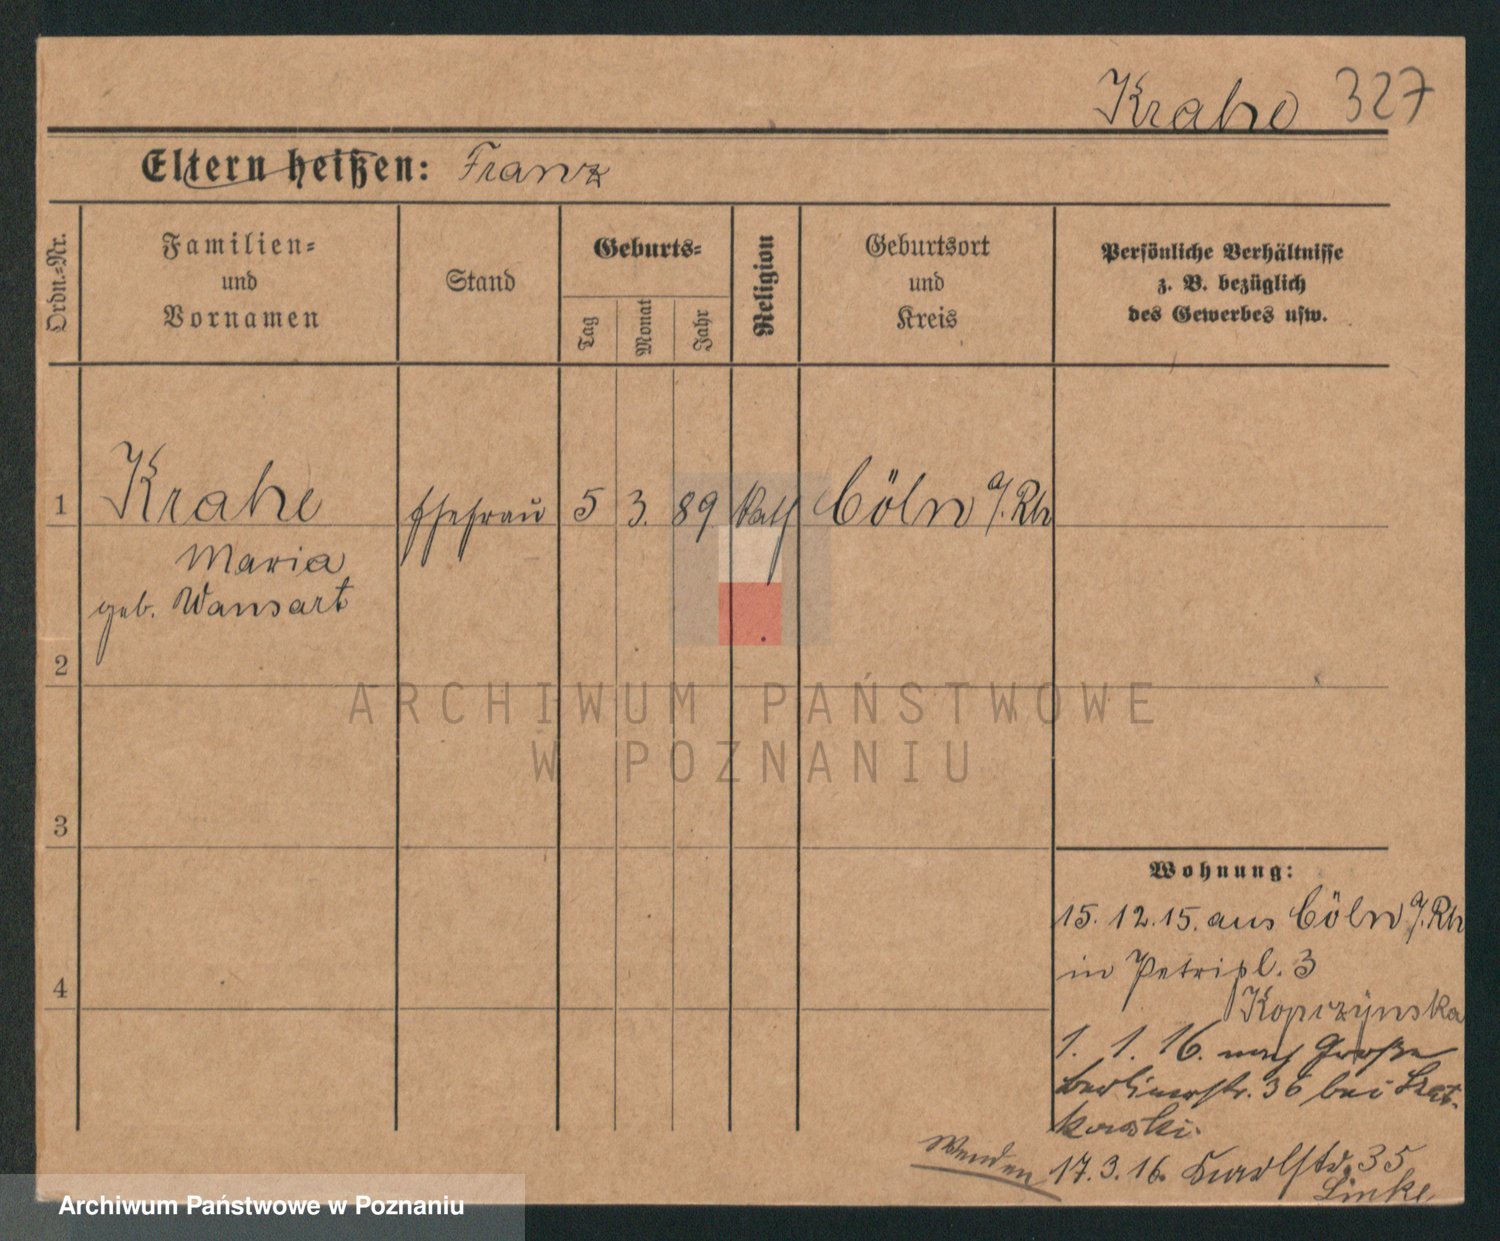 Krahe 327
Eltern heißen: Franz
Ordn.-Nr.
Familien-
und
Vornamen
Stand
Geburts-
Tag
Monat
Jahr
Religion
Geburtsort
und
Kreis
Persönliche Verhältnisse
z. B. bezüglich
des Gewerbes usw.
1 Krahe Ehefrau 5 3. 89 Kath Cöln a/. Rh
Maria
geb. Wansart
2
3
4
Wohnung:
15. 12. 15. aus Cöln a/. Rh
in Petripl. 3
Kopczynska
1. 1. 16. nach Große
Berlinerstr. 36 bei
kowski
Wenden
17. 3. 16. 35
Linke
ARCHIWUM PAŃSTWOWE
W POZNANIU
Archiwum Państwowe w Poznaniu